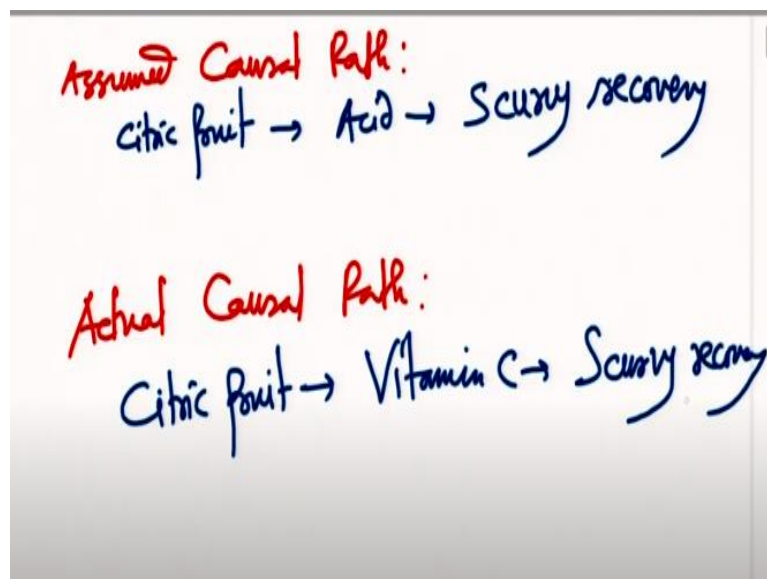 Assumed Causal Path:
Citric fruit → Acid → Scurvy recovery
Actual Causal Path:
Citric fruit → Vitamin C → Scurvy recovery